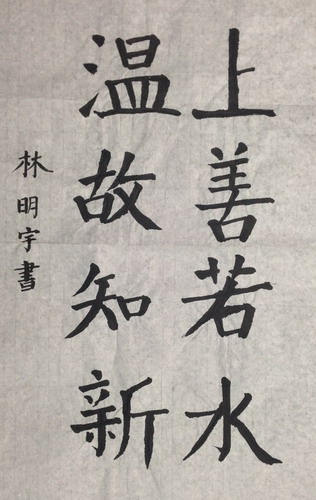 上善若水
温故知新
林明宇書